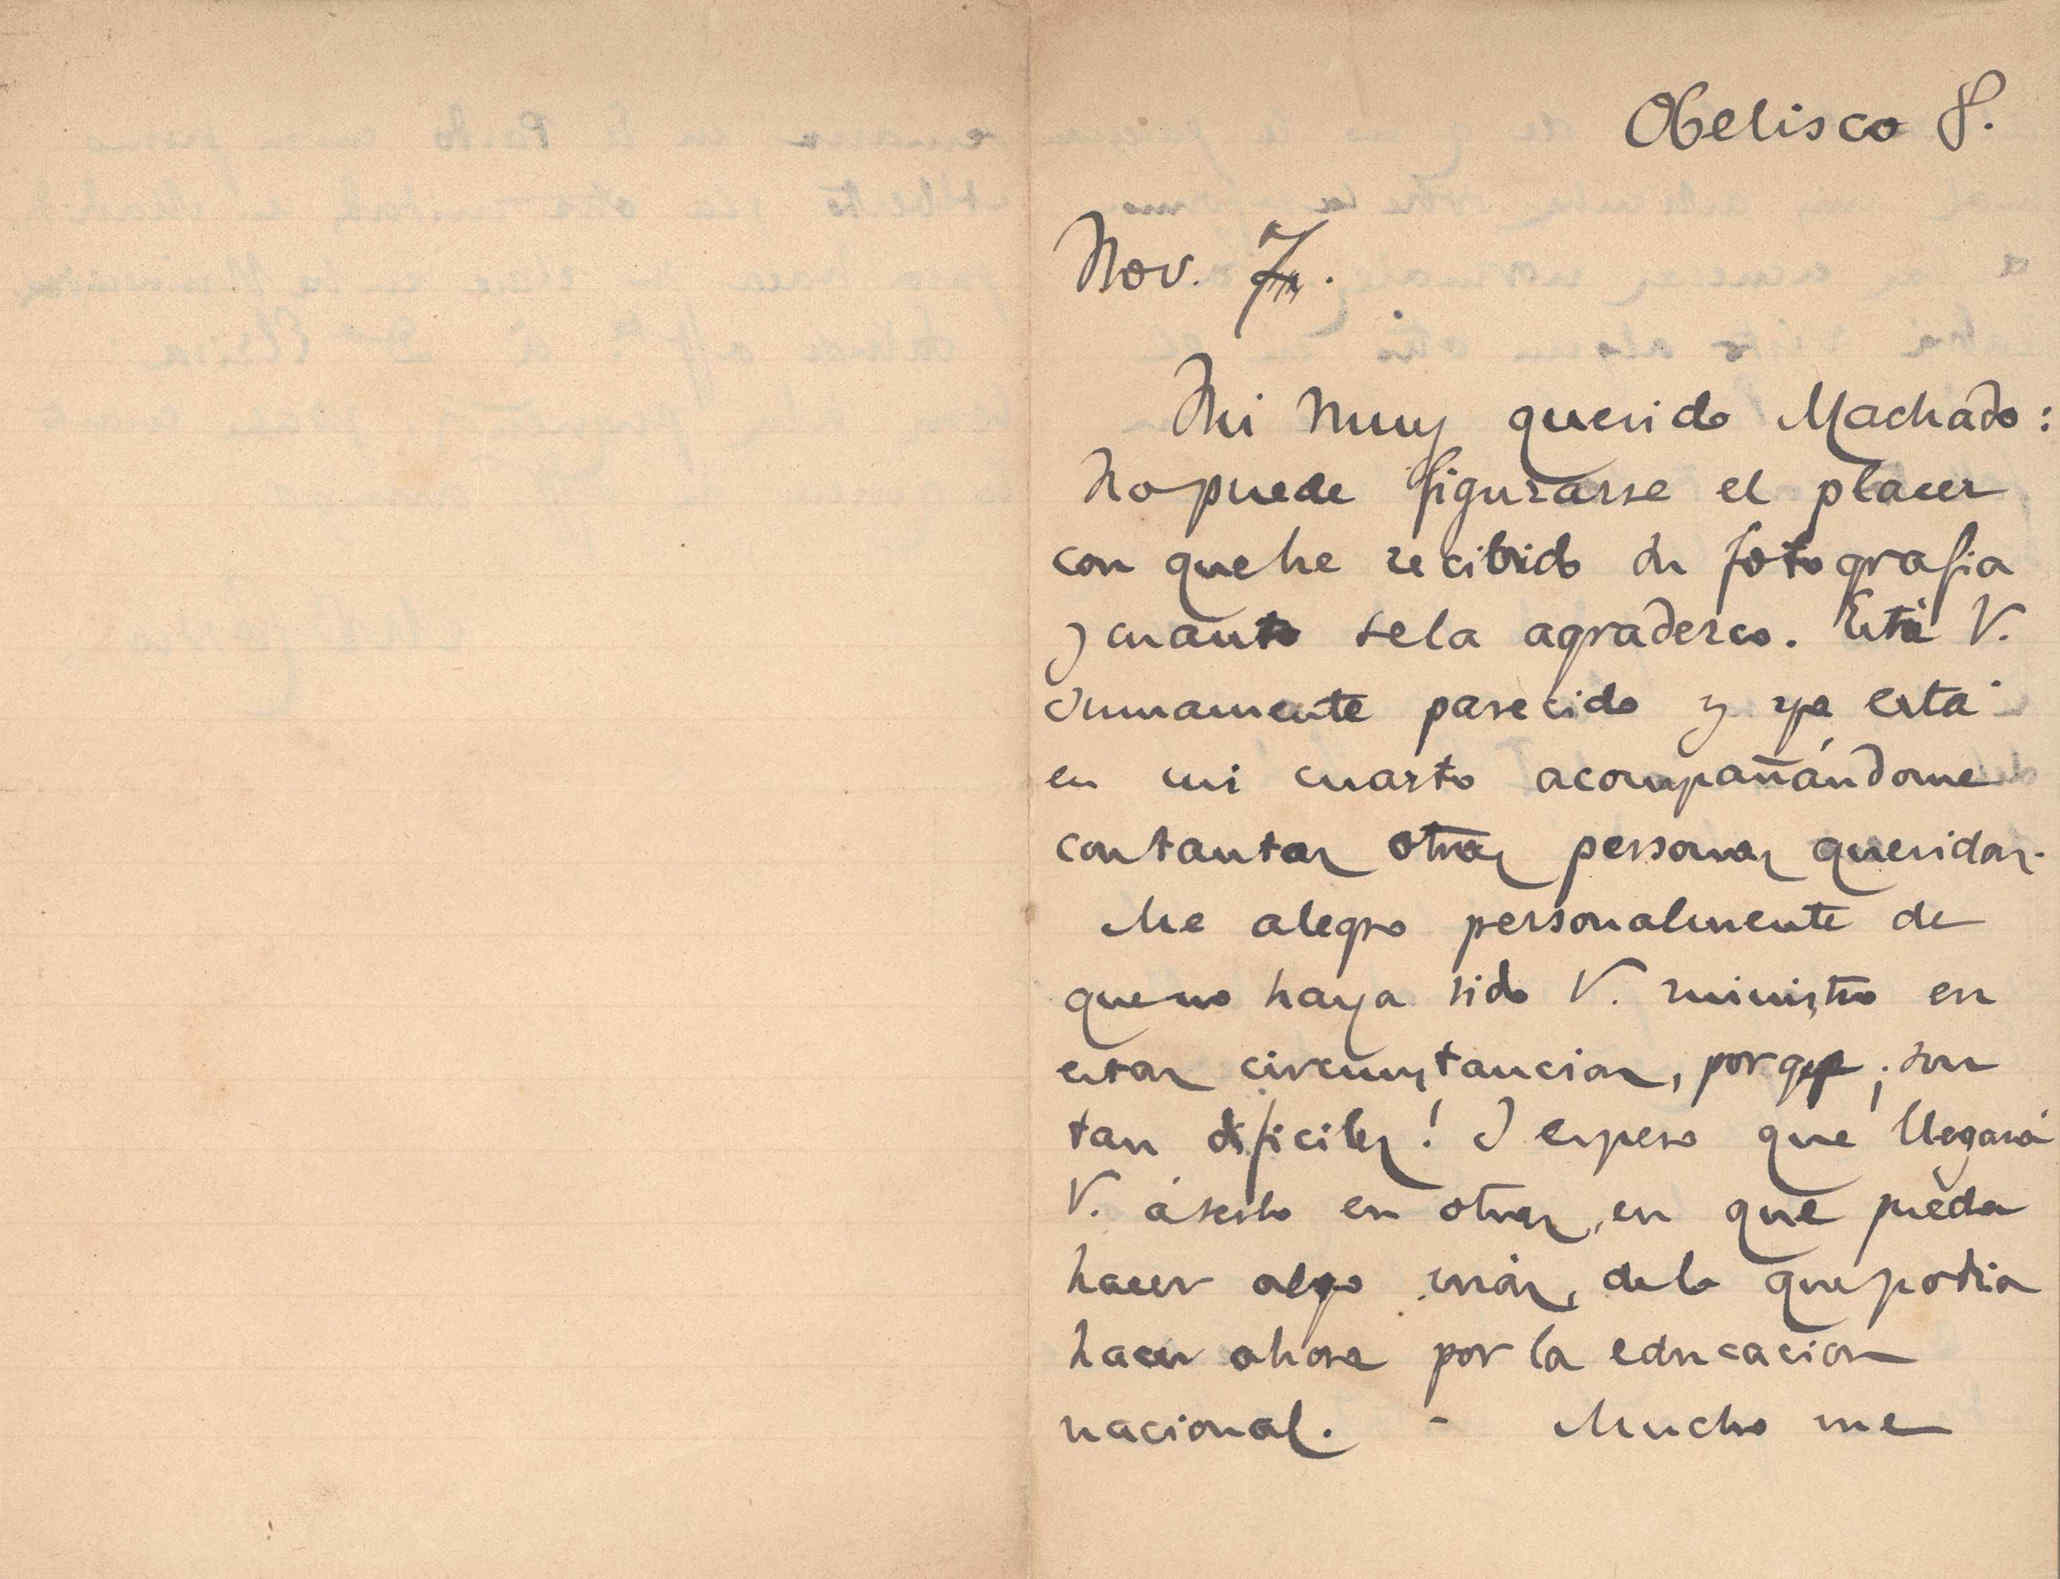 Obelisco 8.
Nov. 7.
Mi muy querido Machado:
no puede figurarse el placer
con que he recibido su fotografia
y cuanto se la agradezco. Está V.
sumamente parecido y ya está
en mi cuarto acompañándome
con tantas otras personas queridas.
Me alegro personalmente de
que no haya sido V. ministro en
estas circunstancias, porque ¡son
tan dificiles! Y espero que llegará
V. á serlo en otras, en que pueda
hacer algo más, de lo que podia
hacer ahora por la educacion
nacional. - Mucho me